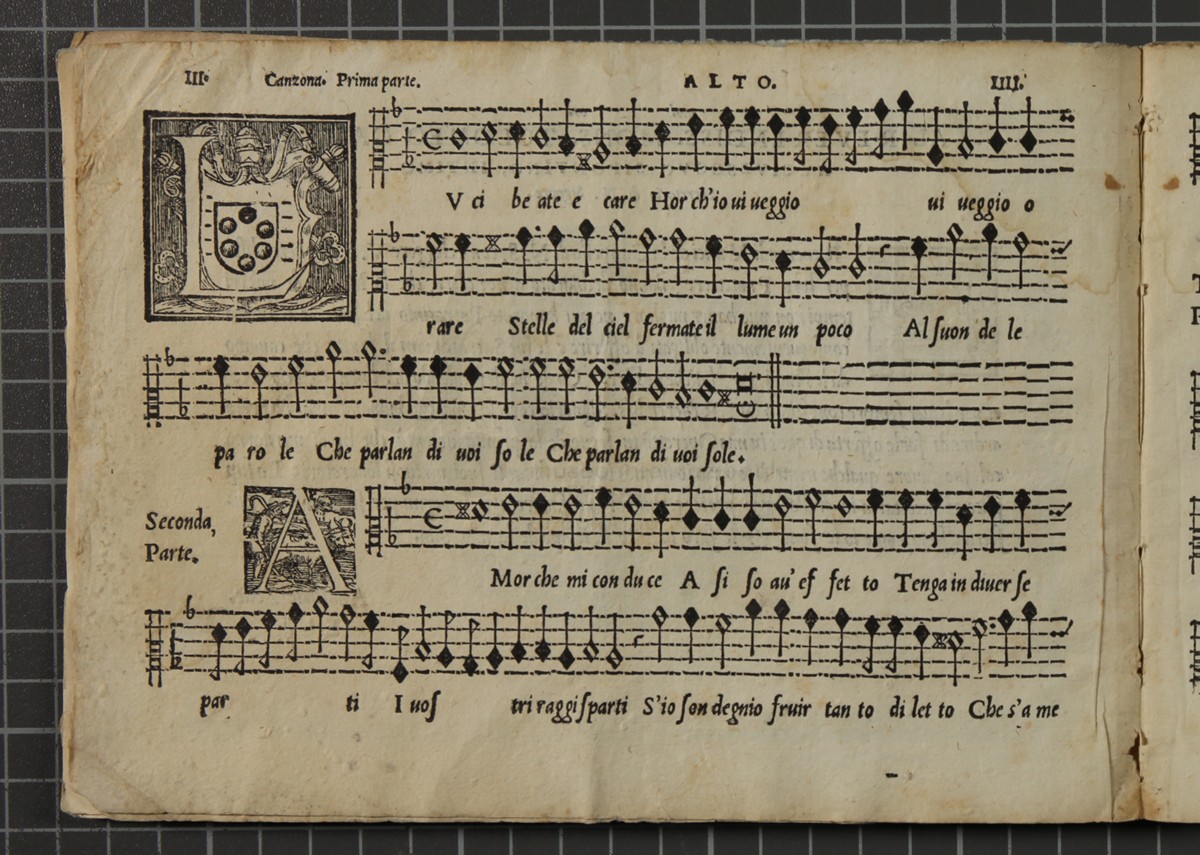 III. Canzona. Prima parte. ALTO. IIII.
L V ci be ate e care Hor ch'io ui ueggio ui ueggio o
rare Stelle del ciel fermate il lume un poco Al ſuon de le
pa ro le Che parlan di uoi ſo le Che parlan di uoi ſole.
Seconda,
Parte.
A Mor che mi con du ce A ſi ſo au' ef fet to Tenga in diuer ſe
par ti I uoſ tri raggi ſparti S'io ſon degnio fruir tan to di let to Che s'a me